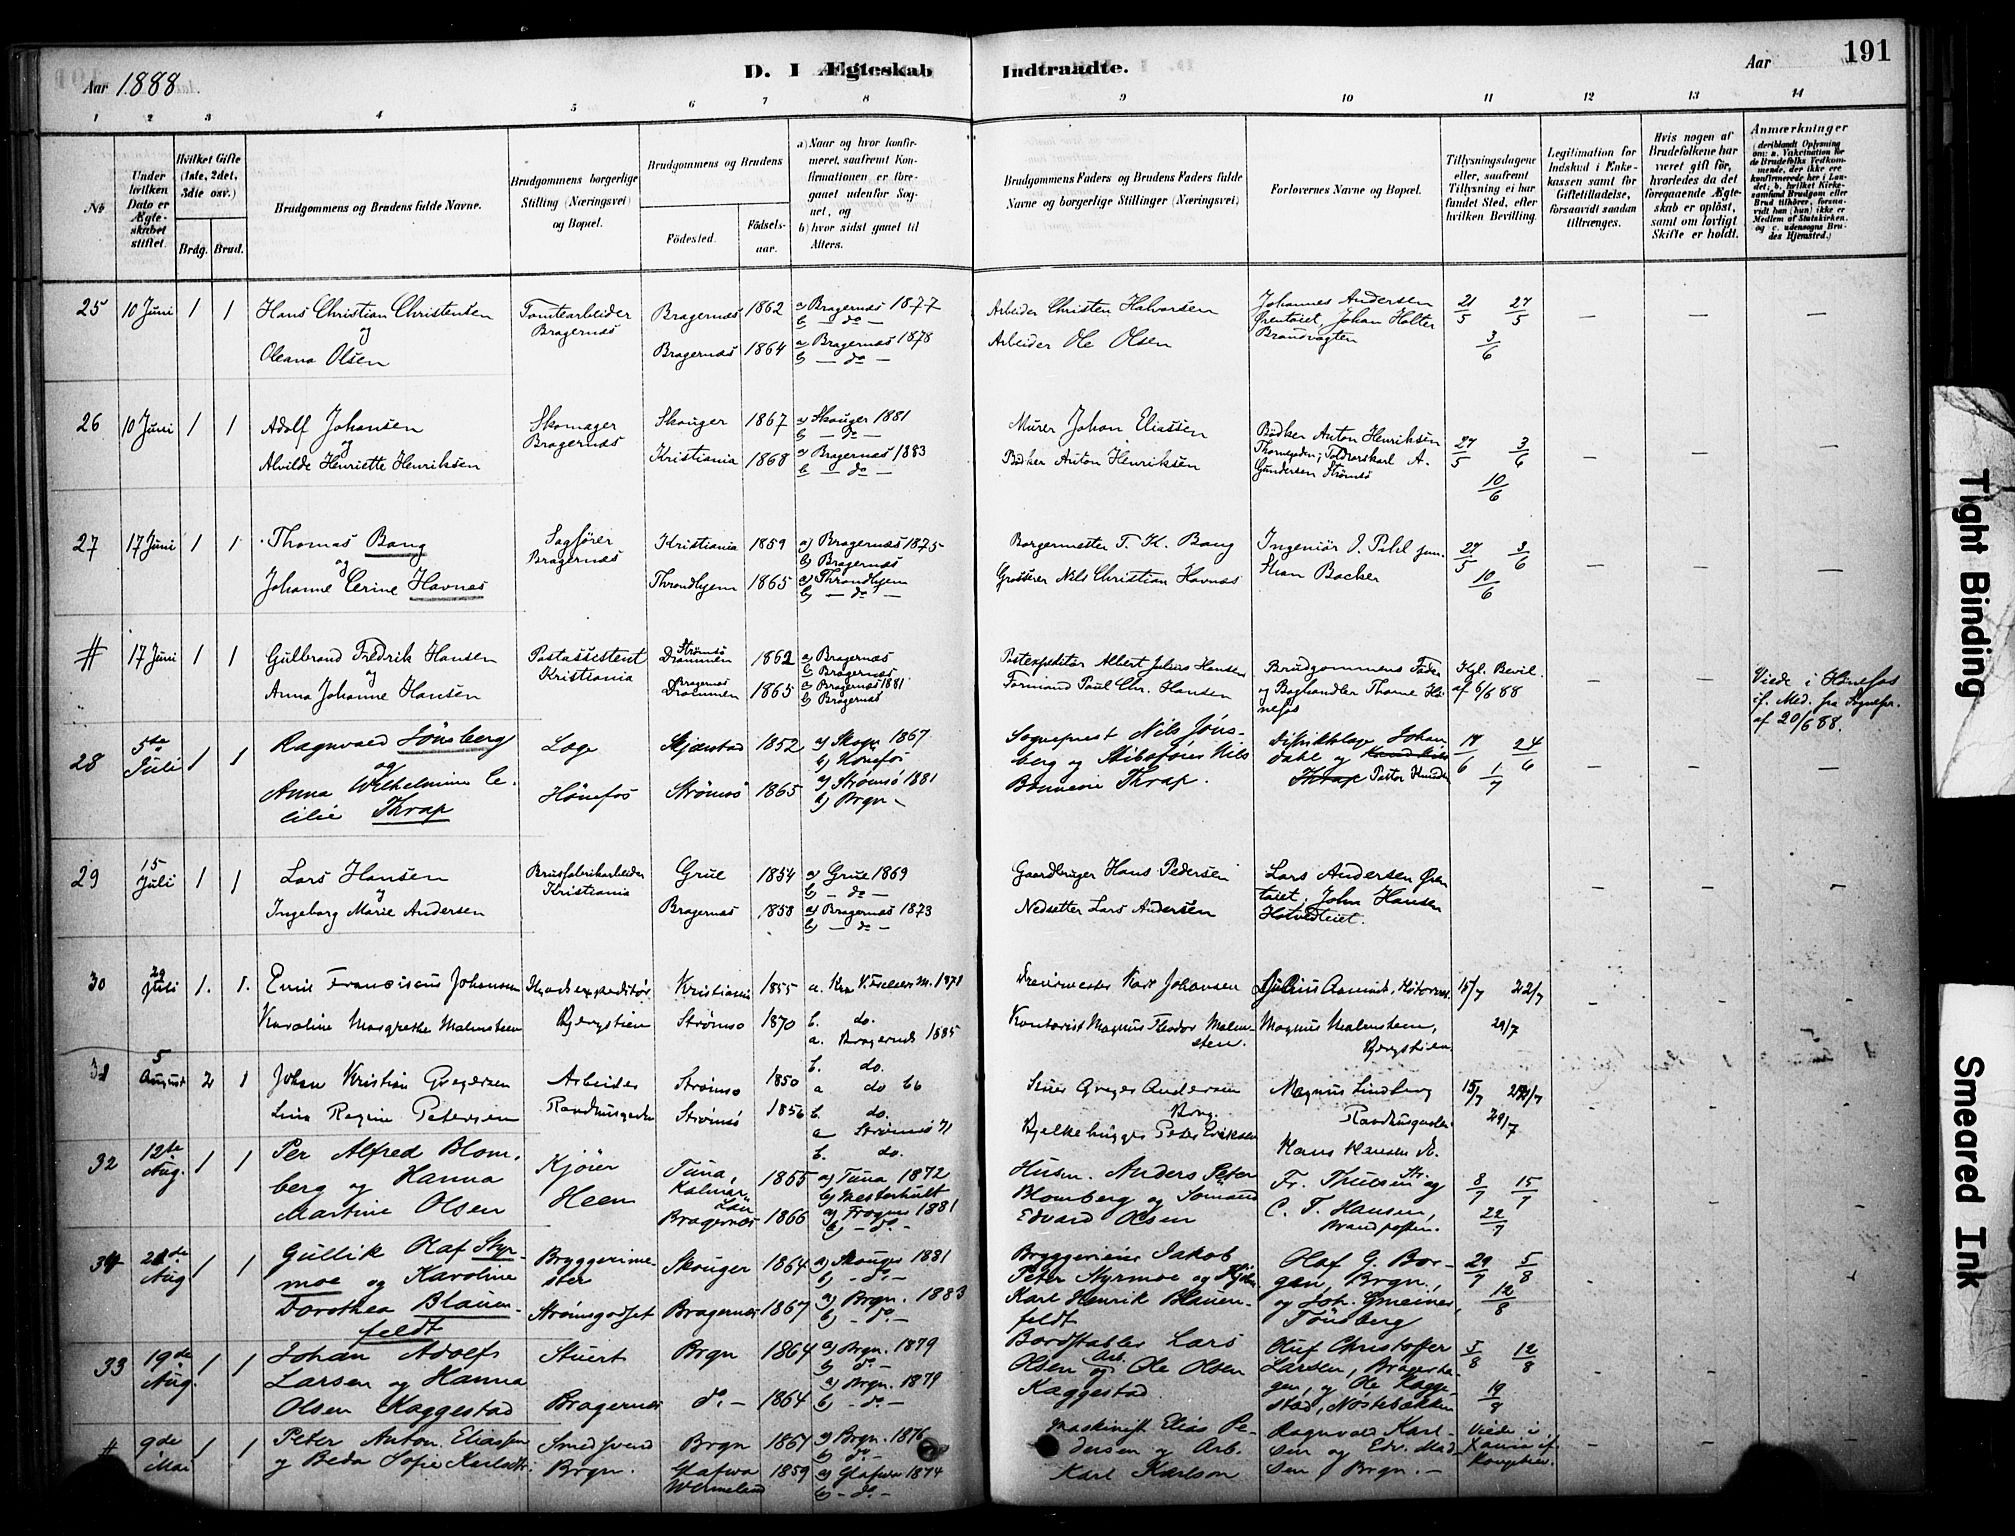 191
D. I Ægteskab Indtraadte.
Aar 1888
Aar
1 2 3 4 5 6 7 8 9 10 11 12 13 14
No
Under hvilken Dato er Ægteskabet stiftet.
Hvilket Gifte (1ste, 2det, 3die osv.)
Brdg. Brud.
Brudgommens og Brudens fulde Navne.
Brudgommens borgerlige Stilling (Næringsvei) og Bopæl.
Brudgommens og Brudens
Fødested.
Fødselsaar.
a) Naar og hvor konfirmeret, saafremt Konfirmationen er foregaaet udenfor Sognet, og
b) hvor sidst gaaet til Alters.
Brudgommens Faders og Brudens Faders fulde Navne og borgerlige Stillinger (Næringsvei)
Forlovernes Navne og Bopæl.
Tillysningsdagene eller, saafremt Tillysning ei har fundet Sted, efter hvilken Bevilling.
Legitimation for Indskud i Enkekassen samt for Giftetilladelse, forsaavidt saadan tiltrænges.
Hvis nogen af Brudefolkene har været gift før, hvorledes da det foregaaende Ægteskab er opløst, samt om lovligt Skifte er holdt.
Anmærkninger
(deriblandt Oplysning om: a. Vakcination for de Brudefolks Vedkommende, der ikke ere konfirmerede her i Landet; b. hvilket Kirkesamfund Brudgom eller Brud tilhører, forsaavidt han (hun) ikke er Medlem af Statskirken, og c. udensogns Brudes Hjemsted.)
25 10 Juni 1 1 Hans Christian Christensen Tomtearbeider Bragernæs 1862 a) Bragernæs 1877 Arbeider Christen Halvorsen Johannes Andersen 21/5 27/5
og Bragernæs b — do — Ørentoiet, Johan Holter
Oleana Olsen Bragernæs 1864 a Bragernæs 1878 Arbeider Ole Olsen Brandvagten 3/6
b) — do —
26 10 Juni 1 1 Adolf Johansen Skomager Skouger 1867 a) Skouger 1881 Murer Johan Eliassen Bødker Anton Henriksen 27/5 3/6
og Bragernæs b — do — A.
Alvilde Henriette Henriksen Kristiania 1868 a) Bragernæs 1883 Bødker Anton Henriksen Gundersen Strømsø 10/6
b — do —
27 17 Juni 1 1 Thomas Bang Sagfører Kristiania 1859 a) Bragernæs 1875 Borgermester T. K. Bang Ingeniør J. Pihl jun. 27/5 3/6
og Bragernæs b) Bragernæs
Johanne Cerine Havnas Throndhjem 1865 a) Throndhjem Grosserer Nils Christian Havnas Backer 10/6
b) — do —
# 17 Juni 1 1 Gulbrand Fredrik Hansen Postassistent Strømsø Drammen 1862 a Bragernæs Postexpeditør Albert Julius Hansen Brudgommens Fader Kgl. Bevil.
og Kristiania b Bragernæs og Boghandler Thorne Hønefos af 6/6 88
Anna Johanne Hansen Bragernæs Drammen 1865 a Bragernæs 1881 Formand Paul Chr. Hansen Viede i Hønefos
b) Bragernæs if. Med. fra Sognepr. af 20/6 88.
28 5te Juli 1 1 Ragnvald Jønsberg Læge 1852 a) 1867 Sogneprest Nils Jønsberg og Skibsfører Nils Distriktslæge Johan Dahl og 17/6 24/6
og b) Hønefos
Anna Wilhelmine Cecilie Thrap Hønefos Strømsø 1865 a) Strømsø 1881 Bonnevie Thrap. 1/7
b) Brgn —
29 15 Juli 1 1 Lars Hansen Brusfabrikarbeider Grue 1854 a) Grue 1869 Gaardbruger Hans Pedersen Lars Andersen Ørentoiet, John Hansen
og Kristiania b) — do —
Ingeborg Marie Andersen Bragernæs 1858 a) Bragernæs 1873 Nedsetter Lars Andersen Hotvedteiet.
b) — do —
30 29 Juli 1. 1. Emil Franciscus Johansen Kristiania 1855 a. 1871 Karl Johansen 15/7 22/7
Karoline Margrethe Malmsteen Strømsø 1870 b. do. Kontorist Magnus Theodor Malmsteen. Magnus Malmsteen, 29/7
a. Bragernæs 1885
b. do.
31 5 August 2 1 Johan Kristian Gregersen Arbeider Strømsø 1850 a do 66 Greger Andersen Magnus Lindberg 15/7 22/7
Lina Regine Petersen Strømsø 1856 b. do. Peter Eriksen 29/7
a Strømsø 71 Hans Hansen
b. do.
32 12te Aug. 1 1 Per Alfred Blomberg og Hanna Martine Olsen Kjøier Heen Tuna, Kalmar Län 1865 a) Tuna 1872 Husm. Anders Peter Blomberg og Formand Edvard Olsen Fr. Thulsen og 8/7 15/7
b) Westerhult C. F. Hansen, Brandposten. 22/7
Bragernæs 1866 a) Frogner 1881
b) — do. —
34 21de Aug 1 1 Gullik Olaf Styrmoe og Karoline Dorothea Blauenfeldt Bryggerimester Strømsgodset Skouger 1864 a) Skouger 1881 Bryggerieier Jakob Peter Styrmoe og Karl Henrik Blauenfeldt Olaf G. Borgen, Brgn., og Joh. Gmeiner, Tønsberg 29/7 5/8
b) — do. —
Bragernæs 1867 a) Brgn. 1883 12/8
b) — do. —
33 19de Aug. 1 1 Johan Adolf Larsen og Hanna Olsen Kaggestad Stuert Bragernæs Brgn 1864 a) Brgn. 1879 Bordstabler Lars Olsen og Arb. Ole Olsen Kaggestad Oluf Christoffer Larsen, Bragerhagen, og Ole Kaggestad, Nøstebækken 5/8 12/8
b) do. —
do. — 1864 a) Brgn. 1879 19/8
b) — do. —
# 9de Mai 1 1 Peter Anton Eliassen og Beda Sofie Karlsdtr. Smedsvend Brgn. Brgn 1867 a) Brgn. 1876 Maskinist Elias Pedersen og Arb. Karl Karlson Ragnvald Karlsen og Edv. Madsen, Brgn. — Viede i
b) do. —
Glafva Wermeland 1859 a) Glafva 1874
b) — do. —
Tight Binding
Smeared Ink